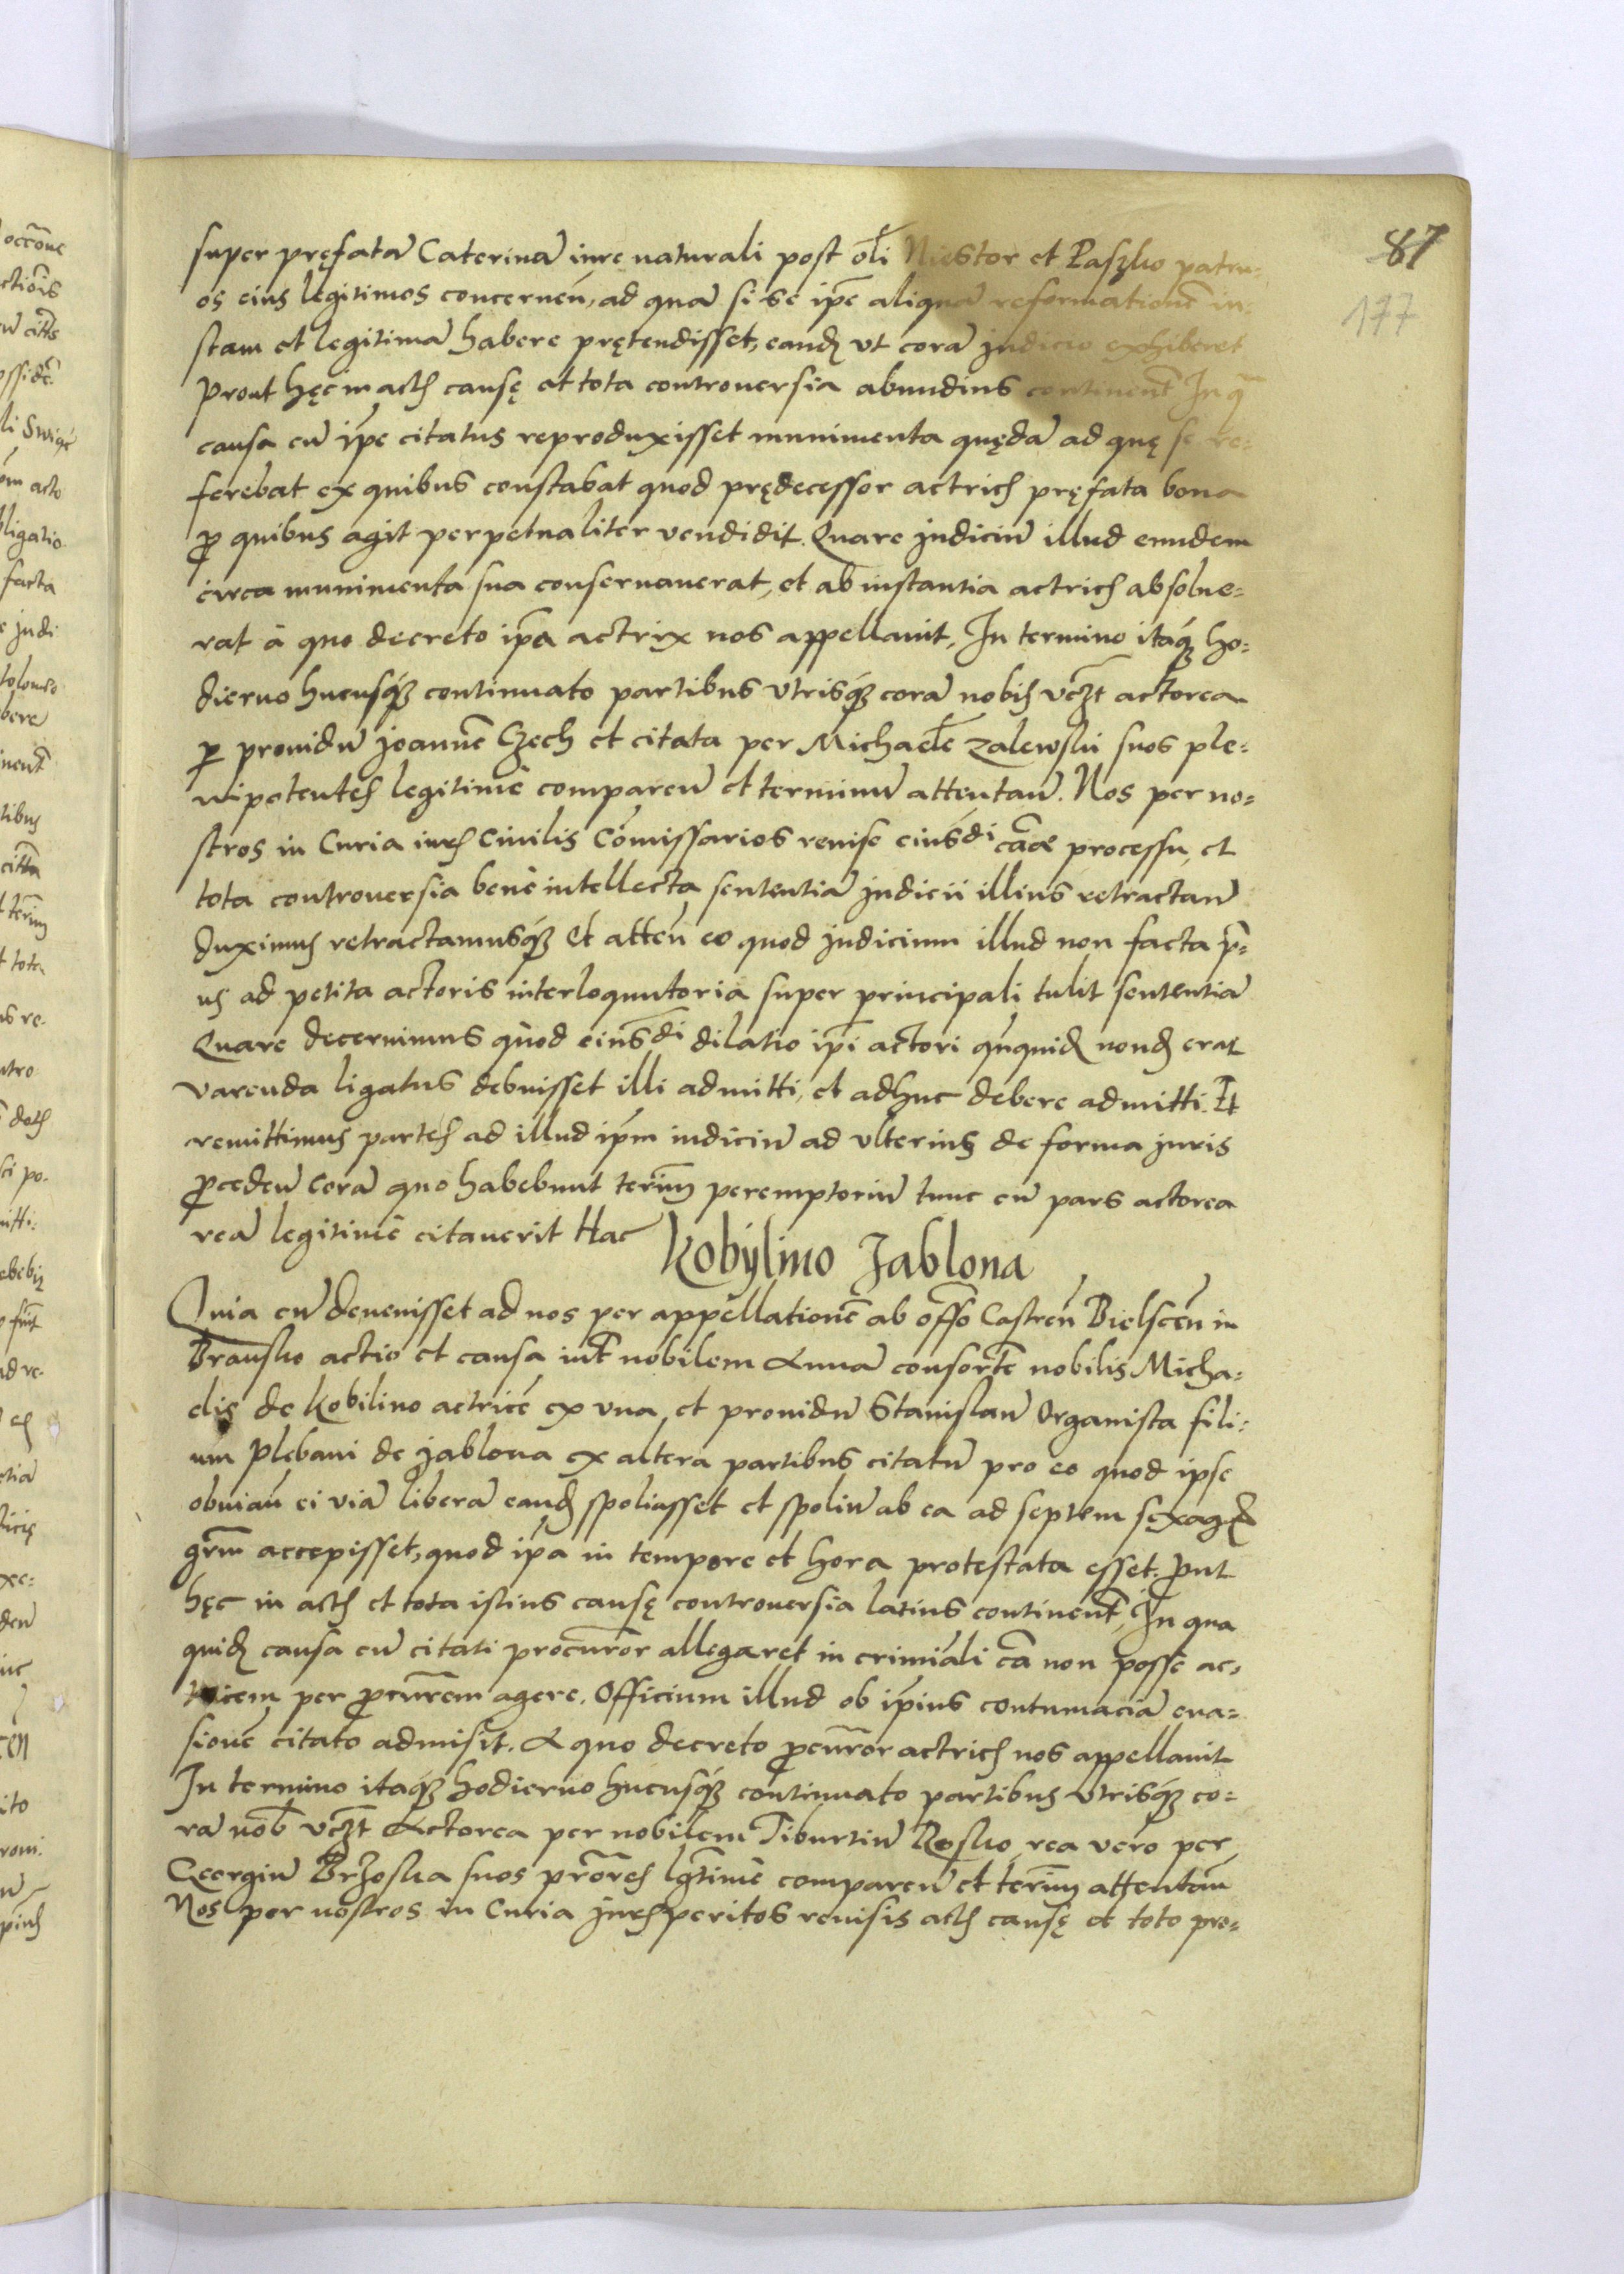 87
177
super pręfatā Caterinā iure naturali post oli Niestor et Paszko patru-
os eius legitimos concerneñ, ad quā si se ip̃e aliquā reformationē iu-
stam et legitimā habere prętendisset, eandȝ vt corā judicio exhiberet
Prout hęc in actis causę et tota controuersia abundius continent̃ In q̃
causa cū ip̃e citatus reproduxisset munimenta quędā ad quę se re-
ferebat ex quibus constabat quod prędecessor actricis pręfata bona
ꝓ quibus agit perpetualiter vendidit. Quare judiciū illud eundem
circa munimenta sua conseruauerat, et ab instantia actricis absolue-
rat à quo decreto ip̃a actrix nos appellauit, In termino itaqȝ ho-
dierno hucusqȝ continuato partibus vtrisqȝ corā nobis vcȝt actorea
ꝑ prouidū Joannē Czech et citata per Michaelē Zalewski suos ple-
nipotentes legitimè compareñ et terminū attentañ. Nos per no-
stros in Curia iuris Ciuilis Com̃issarios reuiso eiusdi cãe processu, et
tota controuersia benè intellecta sententiā judicii illius retractañ
duximus retractamusqȝ Et atteñ eo quod judicium illud non facta pri-
us ad petita actoris interloquutoria super principali tulit sententiā
Quare decernimus quod eiusdi dilatio ip̃i actori qñquidȝ nondȝ erat
varenda ligatus debuisset illi admitti, et adhuc debere admitti. Et
remittimus partes ad illud ip̃m iudiciū ad vlterius de forma juris
ꝓcedeñ Corā quo habebunt term̃ peremptoriū tunc cū pars actorea
reā legitimè citauerit Hac
Kobylino Jablona
Quia cū deuenisset ad nos per appellationē ab off̃o Castreñ Bielsceñ in
Brańsko actio et causa int̃ nobilem Annā consortē nobilis Micha-
elis de Kobilino actricē ex vna, et prouidū Stanislaū Organista fili-
um Plebani de Jablona ex altera partibus citatū pro eo quod ipse
obuiañ ei viā liberā eandȝ spoliasset et spoliū ab ea ad septem sexagȝ
gr̃m accepisset, quod ip̃a in tempore et hora protestata esset. Put
hęc in actis et tota istius causę controuersia latius continent̃, In qua
quidȝ causa cū citati procur̃or allegaret in crimiãli cã non posse ac-
tricem per ꝓcur̃em agere. Officium illud ob ip̃ius contumaciā eua-
sionē citato admisit. A quo decreto ꝓcur̃or actricis nos appellauit
In termino itaqȝ hodierno hucusqȝ continuato partibus vtrisqȝ co-
rā nob̃ vcȝt Actorea per nobilem Tiburtiū Rosko, rea vero per
Georgiū Brzoska suos pr̃ores lg̃timè compareñ et term̃ attentañ
Nos per nostros in Curia juris peritos reuisis actis causę et toto pro-